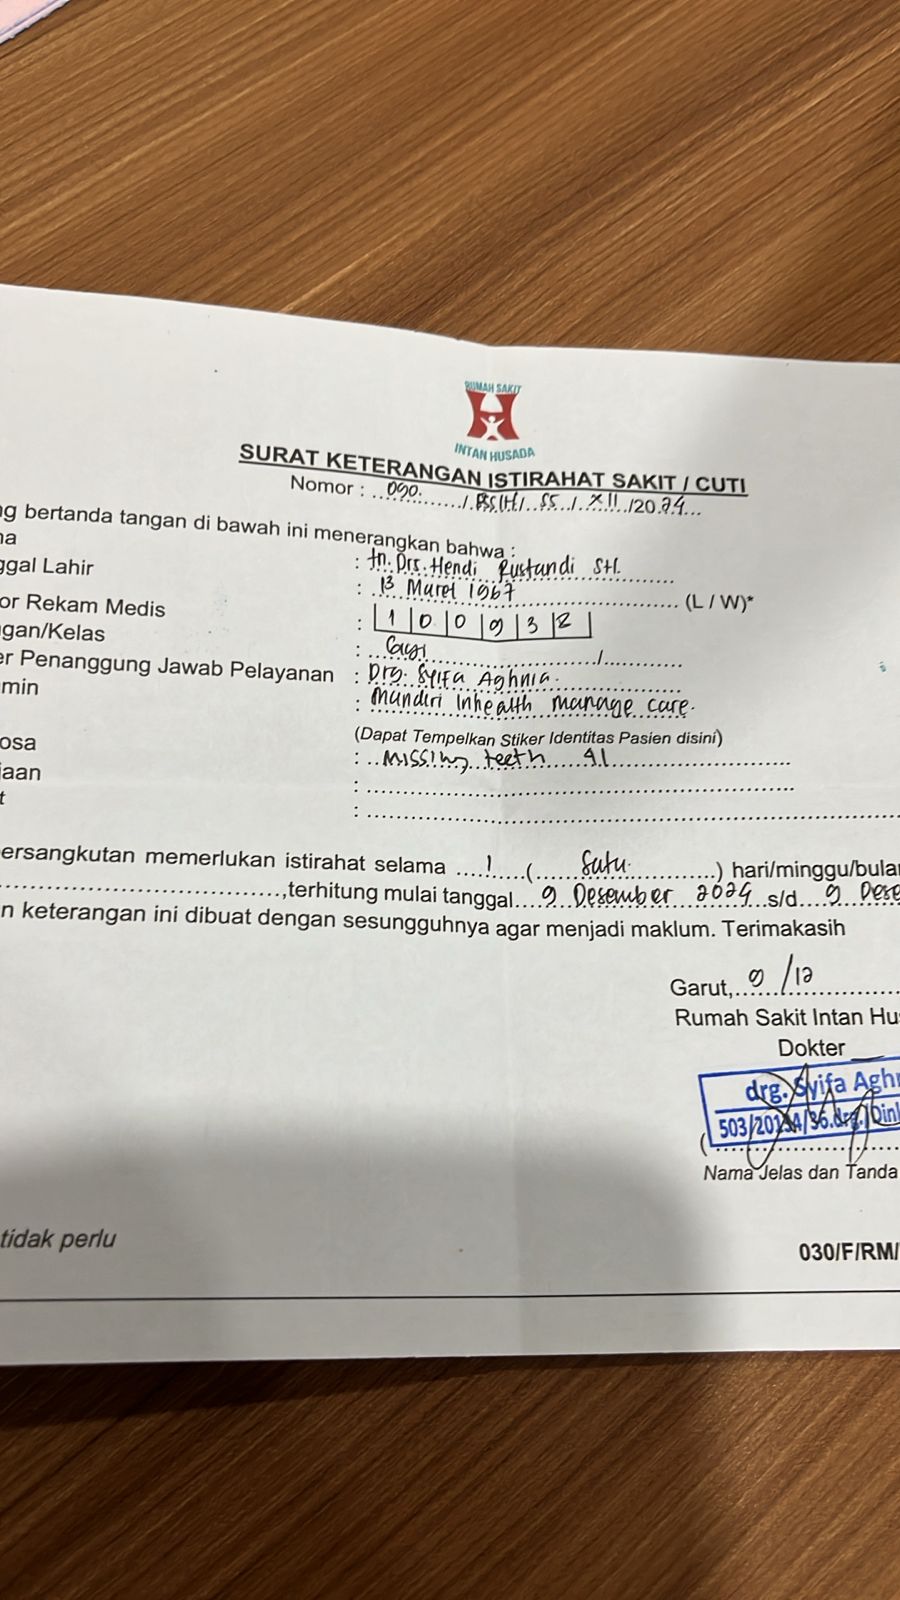 RUMAH SAKIT
INTAN HUSADA
SURAT KETERANGAN ISTIRAHAT SAKIT / CUTI
Nomor : 090 / RSIH / SS / XII /2024
ng bertanda tangan di bawah ini menerangkan bahwa :
na : tn. Drs. Hendi Rustandi SH.
ggal Lahir : 13 Maret 1967 (L / W)*
or Rekam Medis : 1 0 0 9 3 2
gan/Kelas : Gigi /
er Penanggung Jawab Pelayanan : Drg. Syifa Aghnia.
min : Mandiri Inhealth manage care.
(Dapat Tempelkan Stiker Identitas Pasien disini)
osa : Missing teeth 41
jaan :
t :
ersangkutan memerlukan istirahat selama 1 ( Satu ) hari/minggu/bulan
,terhitung mulai tanggal 9 Desember 2024 s/d 9 Dese
n keterangan ini dibuat dengan sesungguhnya agar menjadi maklum. Terimakasih
Garut, 9/12
Rumah Sakit Intan Hus
Dokter
drg. Syifa Aghn
503/20134/36.drg./Dink
(
Nama Jelas dan Tanda
tidak perlu
030/F/RM/